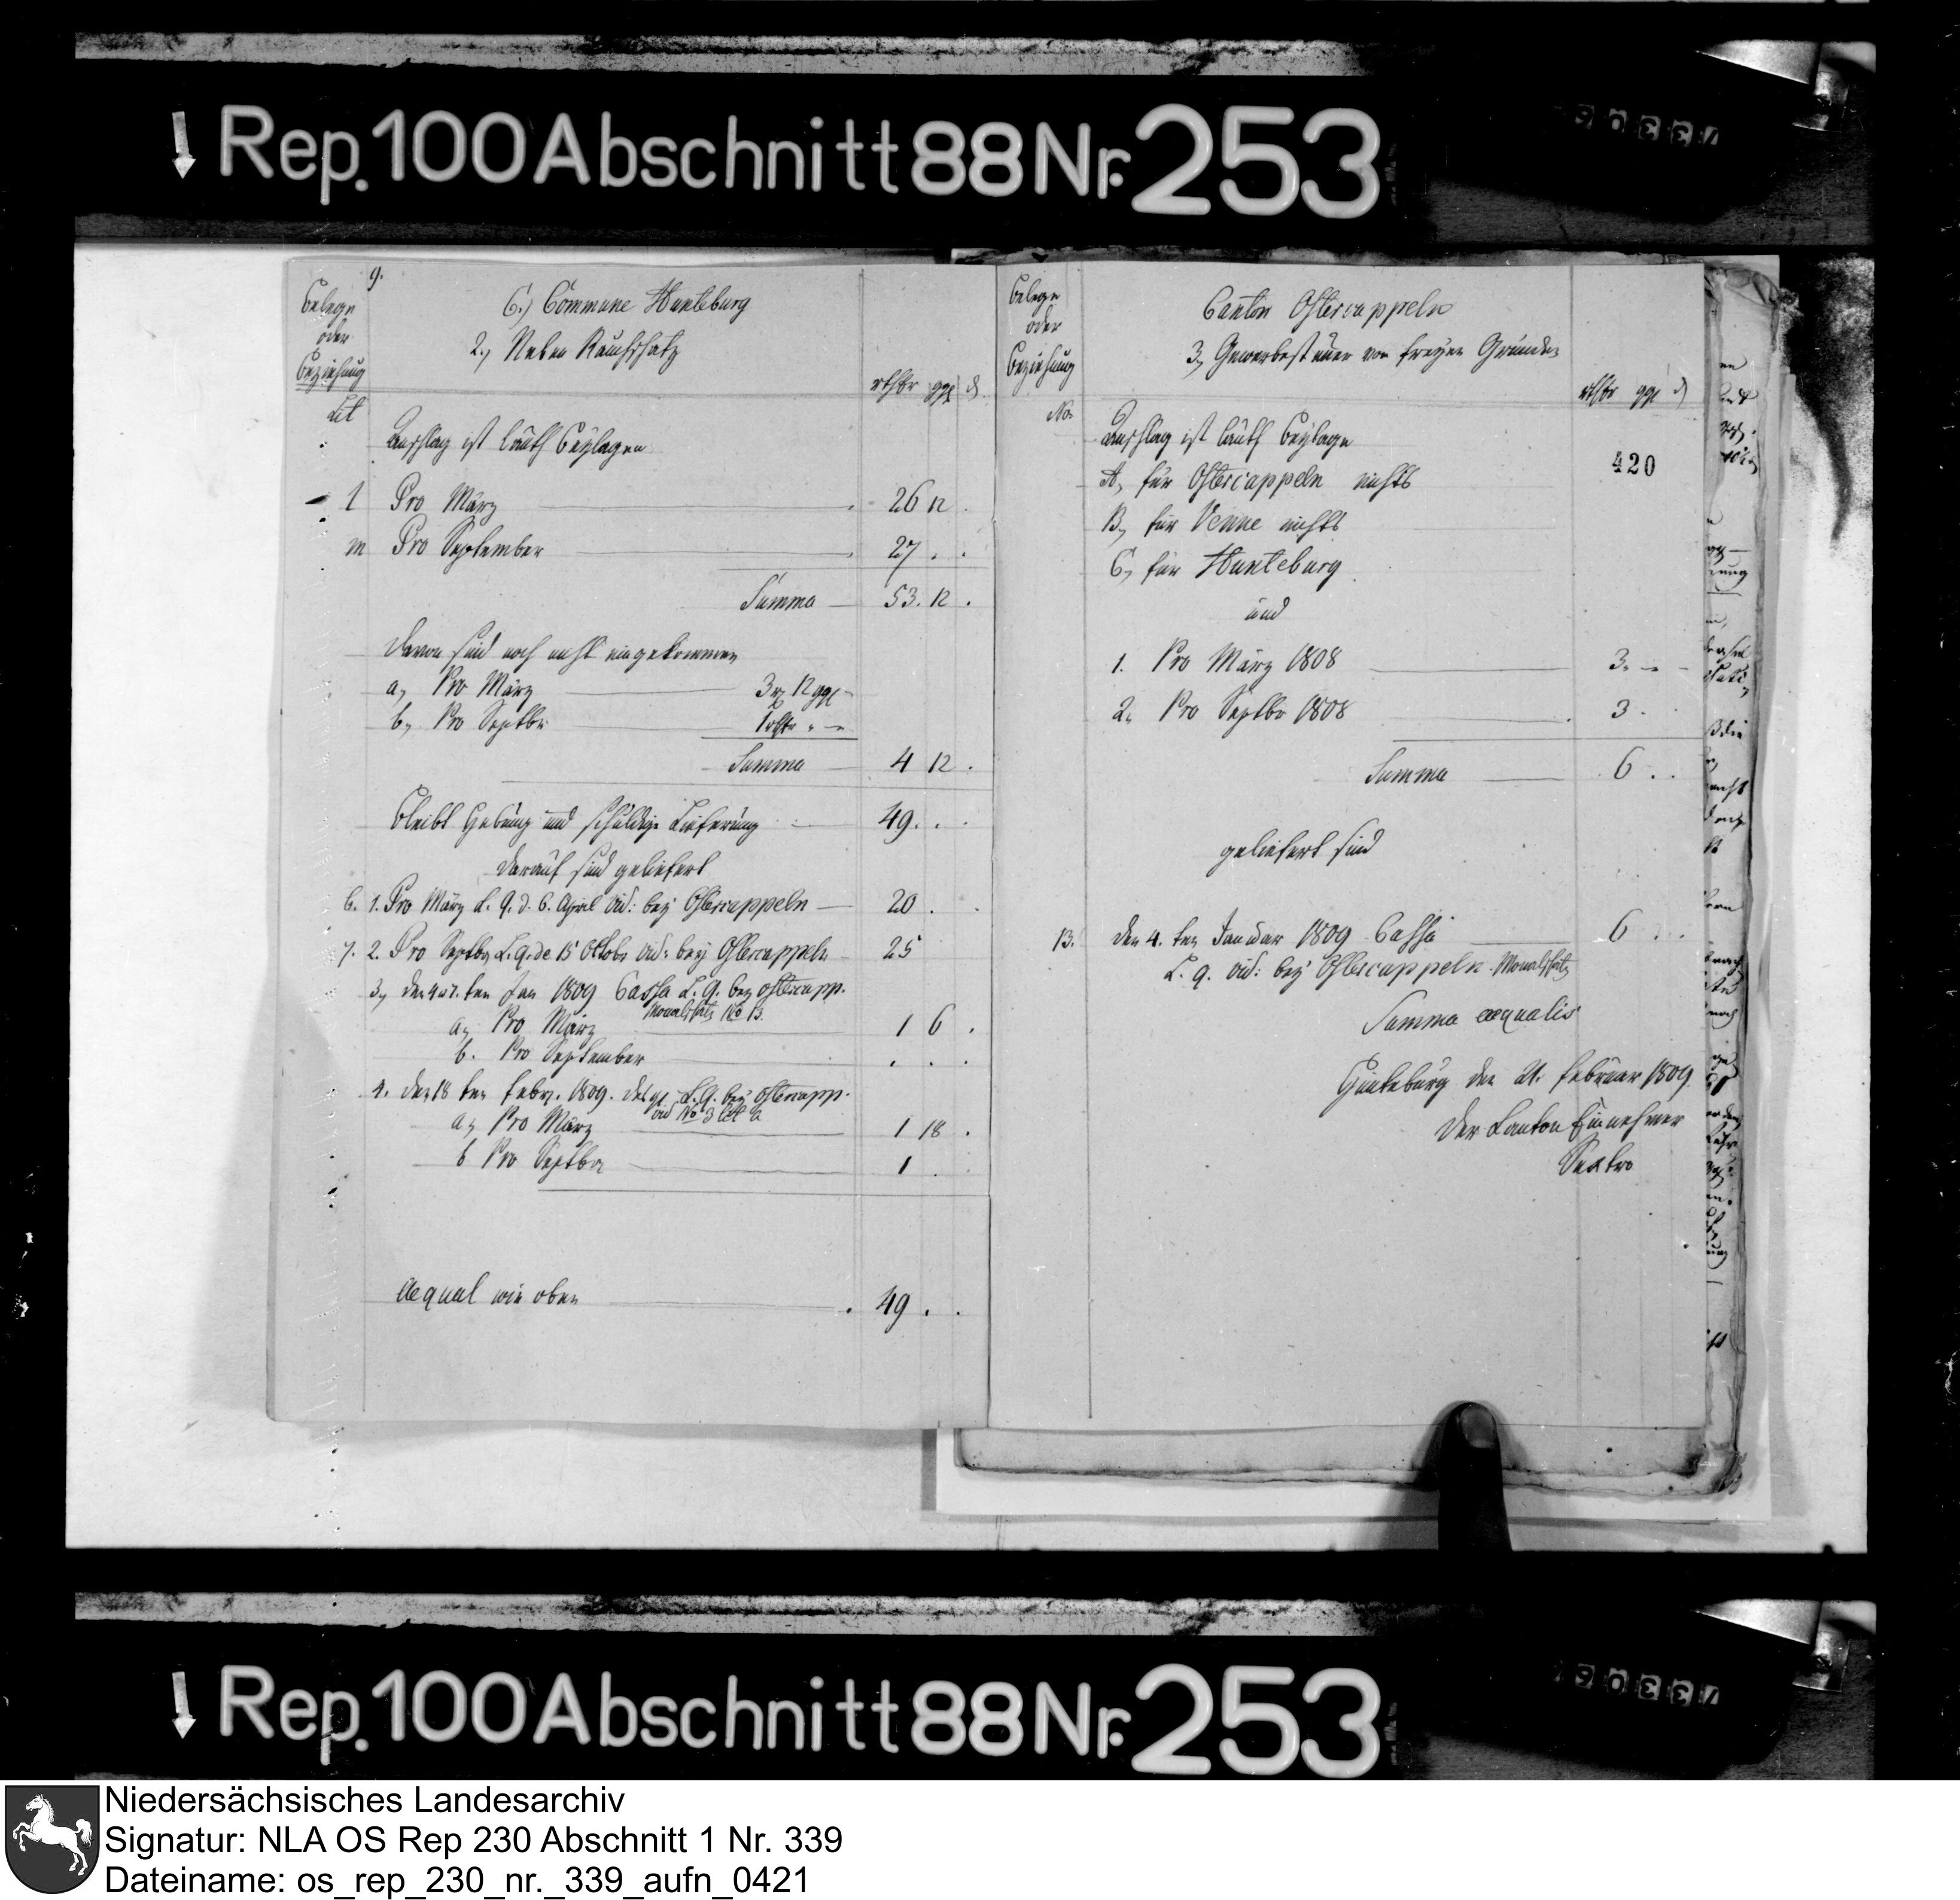 Rep. 100 Abschnitt 88 Nr. 253
73306
9.
Belege
oder
Beziehung
C.) Commune Hunteburg
2.) Neben Rauchschatz
rthlr ggl d
Lit
Anschlag ist lauth Beylagen
l Pro März 26 12 .
m Pro September 27 . .
Summa 53. 12 .
Davon sind noch nicht eingekommen
a, Pro März 3 rt 12 ggl -
b, Pro Septbr 1 rthlr " -
Summa 4 12 .
Bleibt Hebung und schuldige Lieferung 49. . .
Darauf sind geliefert
6. 1. Pro März L. Q. d. 6. April vid: bey Ostercappeln 20 .
7. 2. Pro Septbr L. Q. de 15 Octobr vid: bey Ostercappeln 25
3, den 4 ten Jan 1809 Cassa L. Q. bey Ostercapp.
Monatschatz No 13.
a, Pro März 1 6 .
b. Pro September . . .
4. den 18 ten Febr. 1809. L. Q. bey Ostercapp.
vid No 3 Lit a
a, Pro März 1 18 .
b Pro Septbr 1
Aequal wie oben 49 . .
Belege
oder
Beziehung
Canton Ostercappeln
3, Gewerbesteuer von freyen Gründen
rthlr ggl d
No.
420
Anschlag ist lauth Beylage
A, für Ostercappeln nichts
B, für Venne nichts
C, für Hunteburg
und
1. Pro März 1808 3. - -
2. Pro Septbr 1808 3 .
Summa 6 . .
geliefert sind
13. den 4. ten Januar 1809 Cassa 6 . .
L. Q. vid: bey Ostercappeln Monatschatz
Summa aequalis
Hunteburg den 21. Februar 1809
Der Canton Einnehmer
Sextro
Rep. 100 Abschnitt 88 Nr. 253
73306
Niedersächsisches Landesarchiv
Signatur: NLA OS Rep 230 Abschnitt 1 Nr. 339
Dateiname: os_rep_230_nr._339_aufn_0421